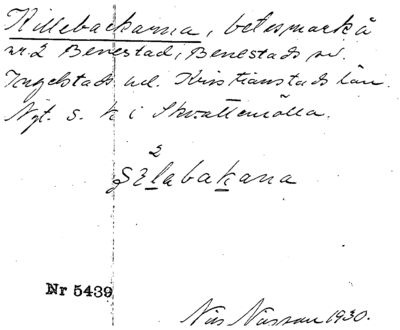 Killebackarna, betesmark å
nr. 2 Benestad, Benestads sn.
Ingelstads hd. Kristianstads län.
Nyt. s. k i Skvattemölla.
2
labakana
Nr 5439
1930.